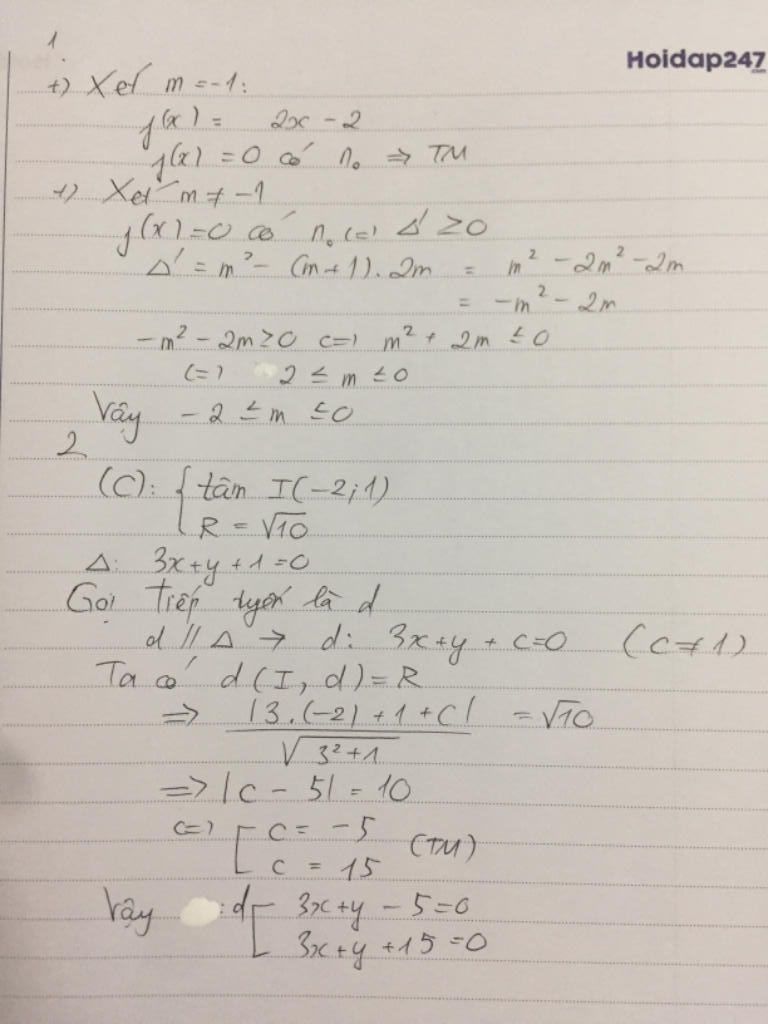 1.
Hoidap247
.com
+) Xét m = -1:
f(x) = 2x - 2
f(x) = 0 có n₀ ⇒ TM
+) Xét m ≠ -1
f(x) = 0 có n₀ (=) Δ' ≥ 0
Δ' = m² - (m+1).2m = m² - 2m² - 2m
= -m² - 2m
-m² - 2m ≥ 0 (=) m² + 2m ≤ 0
(=) 2 ≤ m ≤ 0
Vậy -2 ≤ m ≤ 0
2
(C): { tâm I(-2;1)
R = √10
Δ: 3x+y+1=0
Gọi tiếp tuyến là d
d // Δ → d: 3x+y+c=0 (c≠1)
Ta có d(I,d)=R
⇒ |3.(-2)+1+c| / √3²+1 = √10
⇒ |c - 5| = 10
(=) [ c = -5
c = 15 (TM)
Vậy : d [ 3x+y-5=0
3x+y+15=0